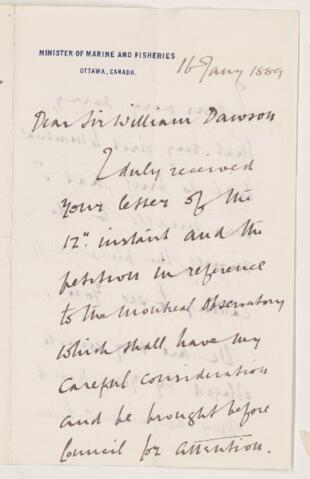 MINISTER OF MARINE AND FISHERIES
OTTAWA, CANADA.
16 Jany 1889
Dear Sir William Dawson
I duly received
your letter of the
12". instant and the
petition in reference
to the Montreal Observatory
which shall have my
careful consideration
and be brought before
Council for attention.